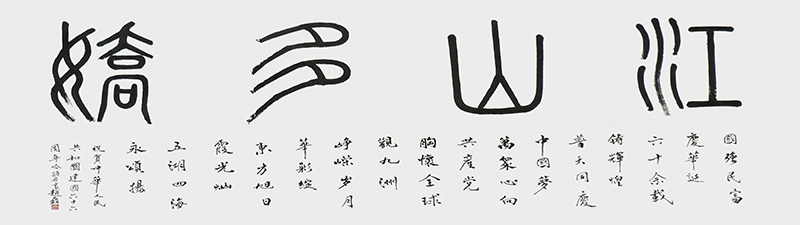 江山多嬌
國强民富
慶華誕
六十余載
鑄輝煌
普天同慶
中國夢
萬衆心向
共產党
胸懷全球
觀九洲
崢嶸岁月
華彩綻
東方旭日
霞光灿
五湖四海
永頌揚
祝賀中華人民
共和國建國六十六
周年